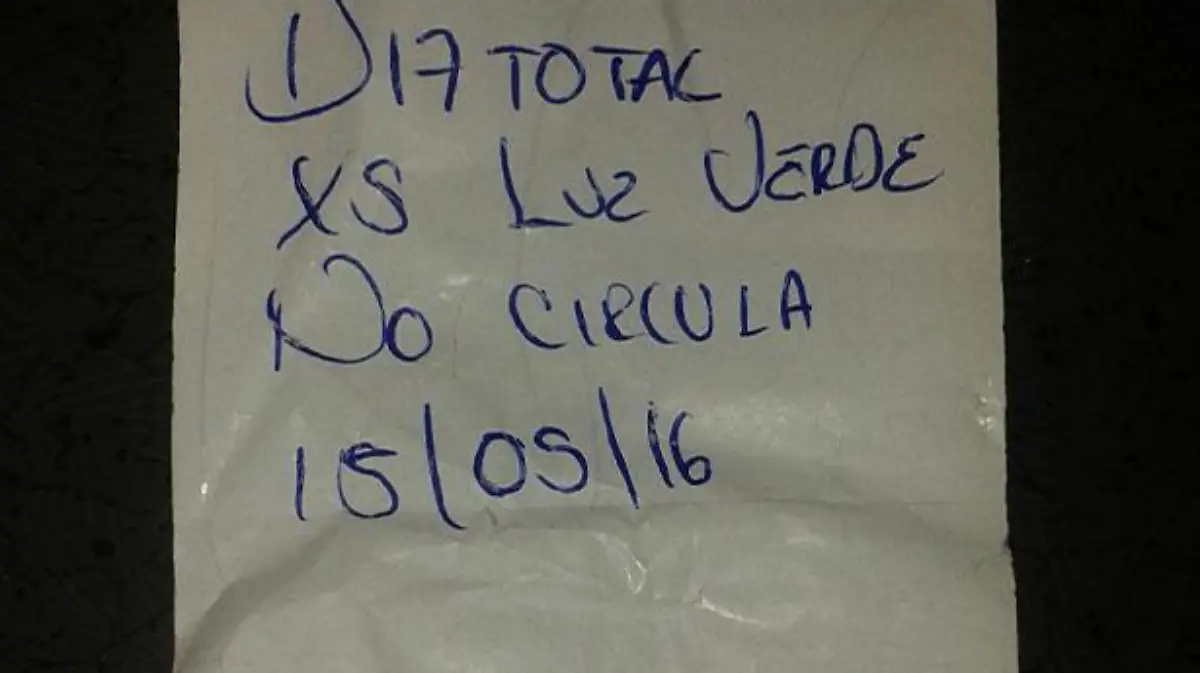 D17 TOTAL
XS LUZ VERDE
NO CIRCULA
15/05/16